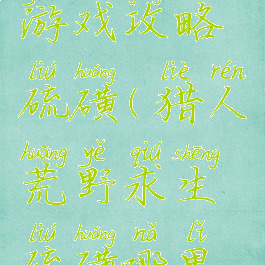 游戏攻略
liú huáng liè rén
硫磺(猎人
huāng yě qiú shēng
荒野求生
liú huáng nǎ lǐ
硫磺哪里